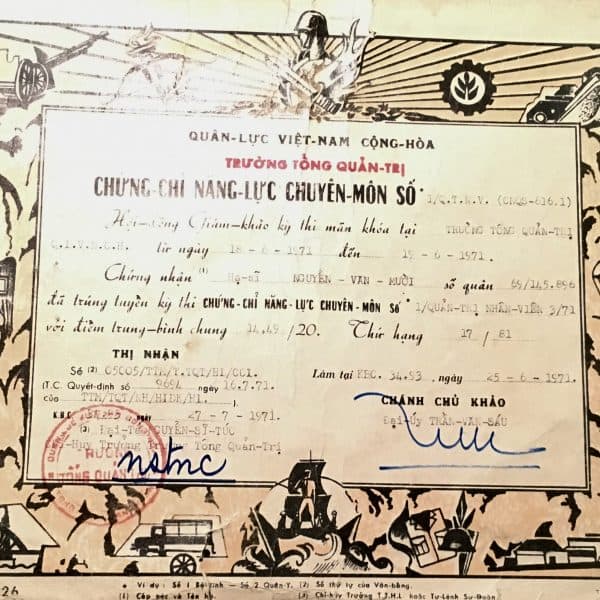 QUÂN-LỰC VIỆT-NAM CỘNG-HÒA
TRƯỜNG TỔNG QUẢN-TRỊ
CHỨNG-CHỈ NĂNG-LỰC CHUYÊN-MÔN SỐ * 1/Q.T.N.V. (CNQS-616.1)
Hội-đồng Giám-khảo kỳ thi mãn khóa tại TRƯỜNG TỔNG QUẢN-TRỊ
Q.L.V.N.C.H. từ ngày 18-6-1971 đến 19-6-1971.
Chứng nhận (1) Hạ-sĩ NGUYỄN - VĂN - MƯỜI số quân 69/145.896
đã trúng tuyển kỳ thi CHỨNG-CHỈ NĂNG-LỰC CHUYÊN-MÔN Số * 1/QUẢN-TRỊ NHÂN-VIÊN 3/71
với điểm trung-bình chung 14.49 /20. Thứ hạng 17 / 81
THỊ NHẬN
Số (2) 05005/TTM/T.TQT/H1/CC1.
(T.C. Quyết-định số 9694 ngày 16.7.71.
của TTM/TQT/NH/HIDH/H1.)
Làm tại KBC. 34.93, ngày 25-6-1971.
K.B.C. ngày 27-7-1971.
CHÁNH CHỦ KHẢO
(3) Đại-Tá NGUYỄN-SĨ-TÚC
Đại-Úy TRẦN-VĂN-SÁU
Chỉ-Huy Trưởng Trường Tổng Quản-Trị
26
* Ví dụ : Số 1 Bộ binh — Số 2 Quân-Y. (2) Số thứ tự của Văn-bằng.
(1) Cấp bậc và Tên họ. (3) Chỉ-huy Trưởng T.T.H.L hoặc Tư-Lệnh Sư-Đoàn